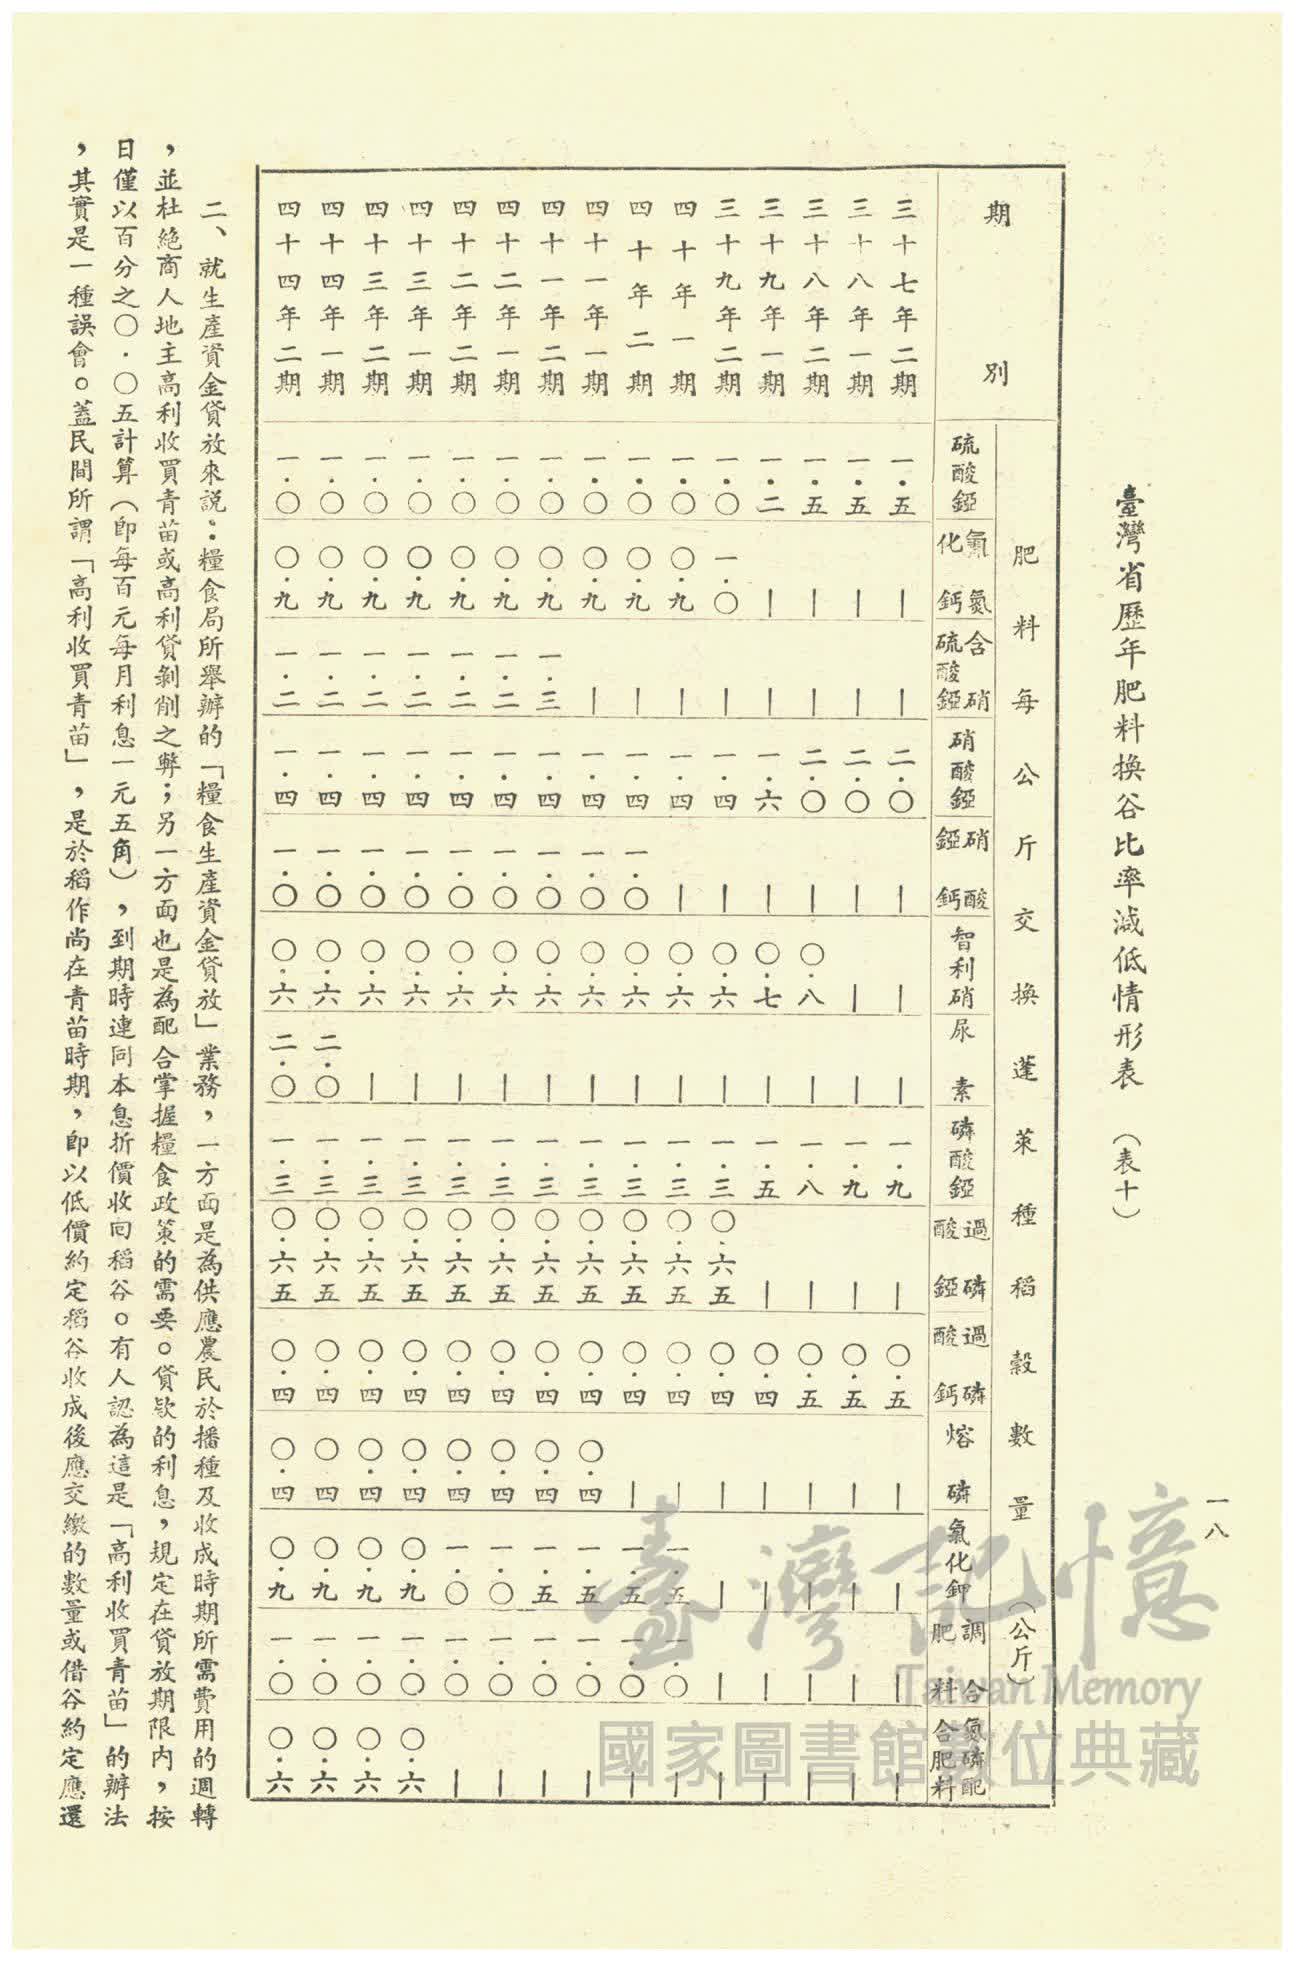 一八
臺灣省歷年肥料換谷比率減低情形表 (表十)
期別
肥料每公斤交換蓬萊種稻穀數量(公斤)
硫酸錏 氰氮化鈣 含硝硫酸錏 硝酸錏 硝酸錏鈣 智利硝 尿素 磷酸錏 過磷酸錏 過磷酸鈣 熔磷 氯化鉀 調合肥料 氮磷配合肥料
三十七年二期 一.五 | | 二.〇 | | | 一.九 | 〇.五 | | | |
三十八年一期 一.五 | | 二.〇 | | | 一.九 | 〇.五 | | | |
三十八年二期 一.五 | | 二.〇 | 〇.八 | 一.八 | 〇.五 | | | |
三十九年一期 一.二 | | 一.六 | 〇.七 | 一.五 | 〇.四 | | | |
三十九年二期 一.〇 一.〇 | 一.四 | 〇.六 | 一.三 〇.六五 〇.四 | | | |
四十年一期 一.〇 〇.九 | 一.四 | 〇.六 | 一.三 〇.六五 〇.四 | 一.五 一.〇 |
四十年二期 一.〇 〇.九 | 一.四 一.〇 〇.六 | 一.三 〇.六五 〇.四 | 一.五 一.〇 |
四十一年一期 一.〇 〇.九 | 一.四 一.〇 〇.六 | 一.三 〇.六五 〇.四 〇.四 一.五 一.〇 |
四十一年二期 一.〇 〇.九 一.三 一.四 一.〇 〇.六 | 一.三 〇.六五 〇.四 〇.四 一.五 一.〇 |
四十二年一期 一.〇 〇.九 一.二 一.四 一.〇 〇.六 | 一.三 〇.六五 〇.四 〇.四 一.〇 一.〇 |
四十二年二期 一.〇 〇.九 一.二 一.四 一.〇 〇.六 | 一.三 〇.六五 〇.四 〇.四 一.〇 一.〇 |
四十三年一期 一.〇 〇.九 一.二 一.四 一.〇 〇.六 | 一.三 〇.六五 〇.四 〇.四 〇.九 一.〇 〇.六
四十三年二期 一.〇 〇.九 一.二 一.四 一.〇 〇.六 | 一.三 〇.六五 〇.四 〇.四 〇.九 一.〇 〇.六
四十四年一期 一.〇 〇.九 一.二 一.四 一.〇 〇.六 二.〇 一.三 〇.六五 〇.四 〇.四 〇.九 一.〇 〇.六
四十四年二期 一.〇 〇.九 一.二 一.四 一.〇 〇.六 二.〇 一.三 〇.六五 〇.四 〇.四 〇.九 一.〇 〇.六
二、就生產資金貸放來説:糧食局所舉辦的「糧食生產資金貸放」業務,一方面是為供應農民於播種及收成時期所需費用的週轉
,並杜絕商人地主高利收買青苗或高利貸剝削之弊;另一方面也是為配合掌握糧食政策的需要。貸欵的利息,規定在貸放期限內,按
日僅以百分之〇.〇五計算(即每百元每月利息一元五角),到期時連同本息折價收回稻谷。有人認為這是「高利收買青苗」的辦法
,其實是一種誤會。蓋民間所謂「高利收買青苗」,是於稻作尚在青苗時期,即以低價約定稻谷收成後應交繳的數量或借谷約定應還
臺灣記憶
Taiwan Memory
國家圖書館數位典藏